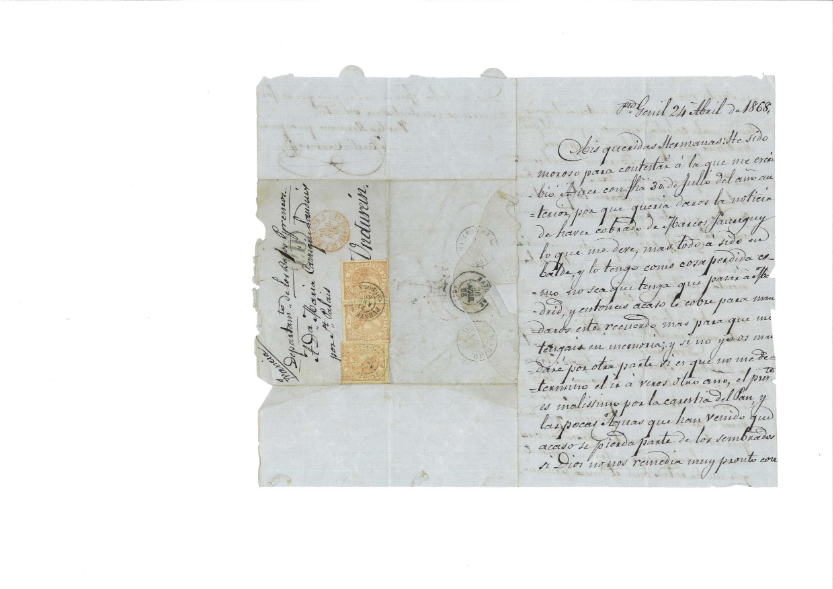 Genil 24 Abril de 1868,
Mis queridas Hermanas: He sido
moroso para contestar á la que me escri
bió con fha 30 de Julio del año an
-terior, por que queria daros la noticia
de haver cobrado de Marcos
lo que me deve, mas todo a sido en
balde, y lo tengo como cosa perdida co-
-mo no sea que tenga que pasar a Ma
drid, y entonces acaso le cobre para man
daros este recuerdo mas para que me
tengais en memoria; y si no yo os man
daré por otra parte si es que no me de-
-termino el ir á veros otro año, el pres.te
es malissimo por la carestia del Pan, y
las pocas Aguas que han venido que
acaso se pierda parte de los sembrados
si Dios no nos remedia muy pronto con
Francia
Departam.to de los Pirineos
A Da Maria
por St Palais
Undurein.